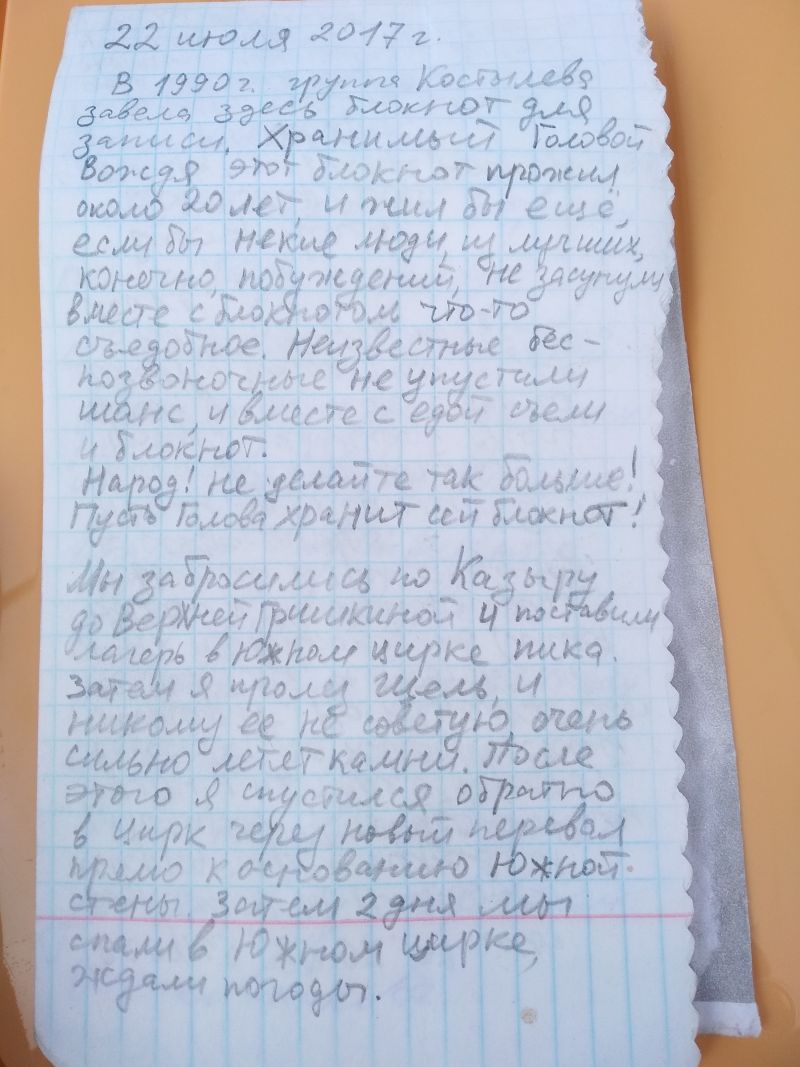 22 июля 2017 г.
В 1990г. группа Костылева
завела здесь блокнот для
записи. Хранимый Головой
Вождя этот блокнот прожил
около 20 лет, и жил бы ещё,
если бы некие люди, из лучших,
конечно, побуждений, не засунули
вместе с блокнотом что-то
съедобное. Неизвестные бес-
позвоночные не упустили
шанс, и вместе с едой съели
и блокнот.
Народ! не делайте так больше!
Пусть Голова хранит сей блокнот!
Мы забросились по Казыру
до Верхней Гришкиной и поставили
лагерь в Южном цирке пика.
Затем я пролез Щель, и
никому ее не советую, очень
сильно летят камни. После
этого я спустился обратно
в цирк через новый перевал
прямо к основанию Южной
стены. Затем 2 дня мы
спали в Южном цирке,
ждали погоды.